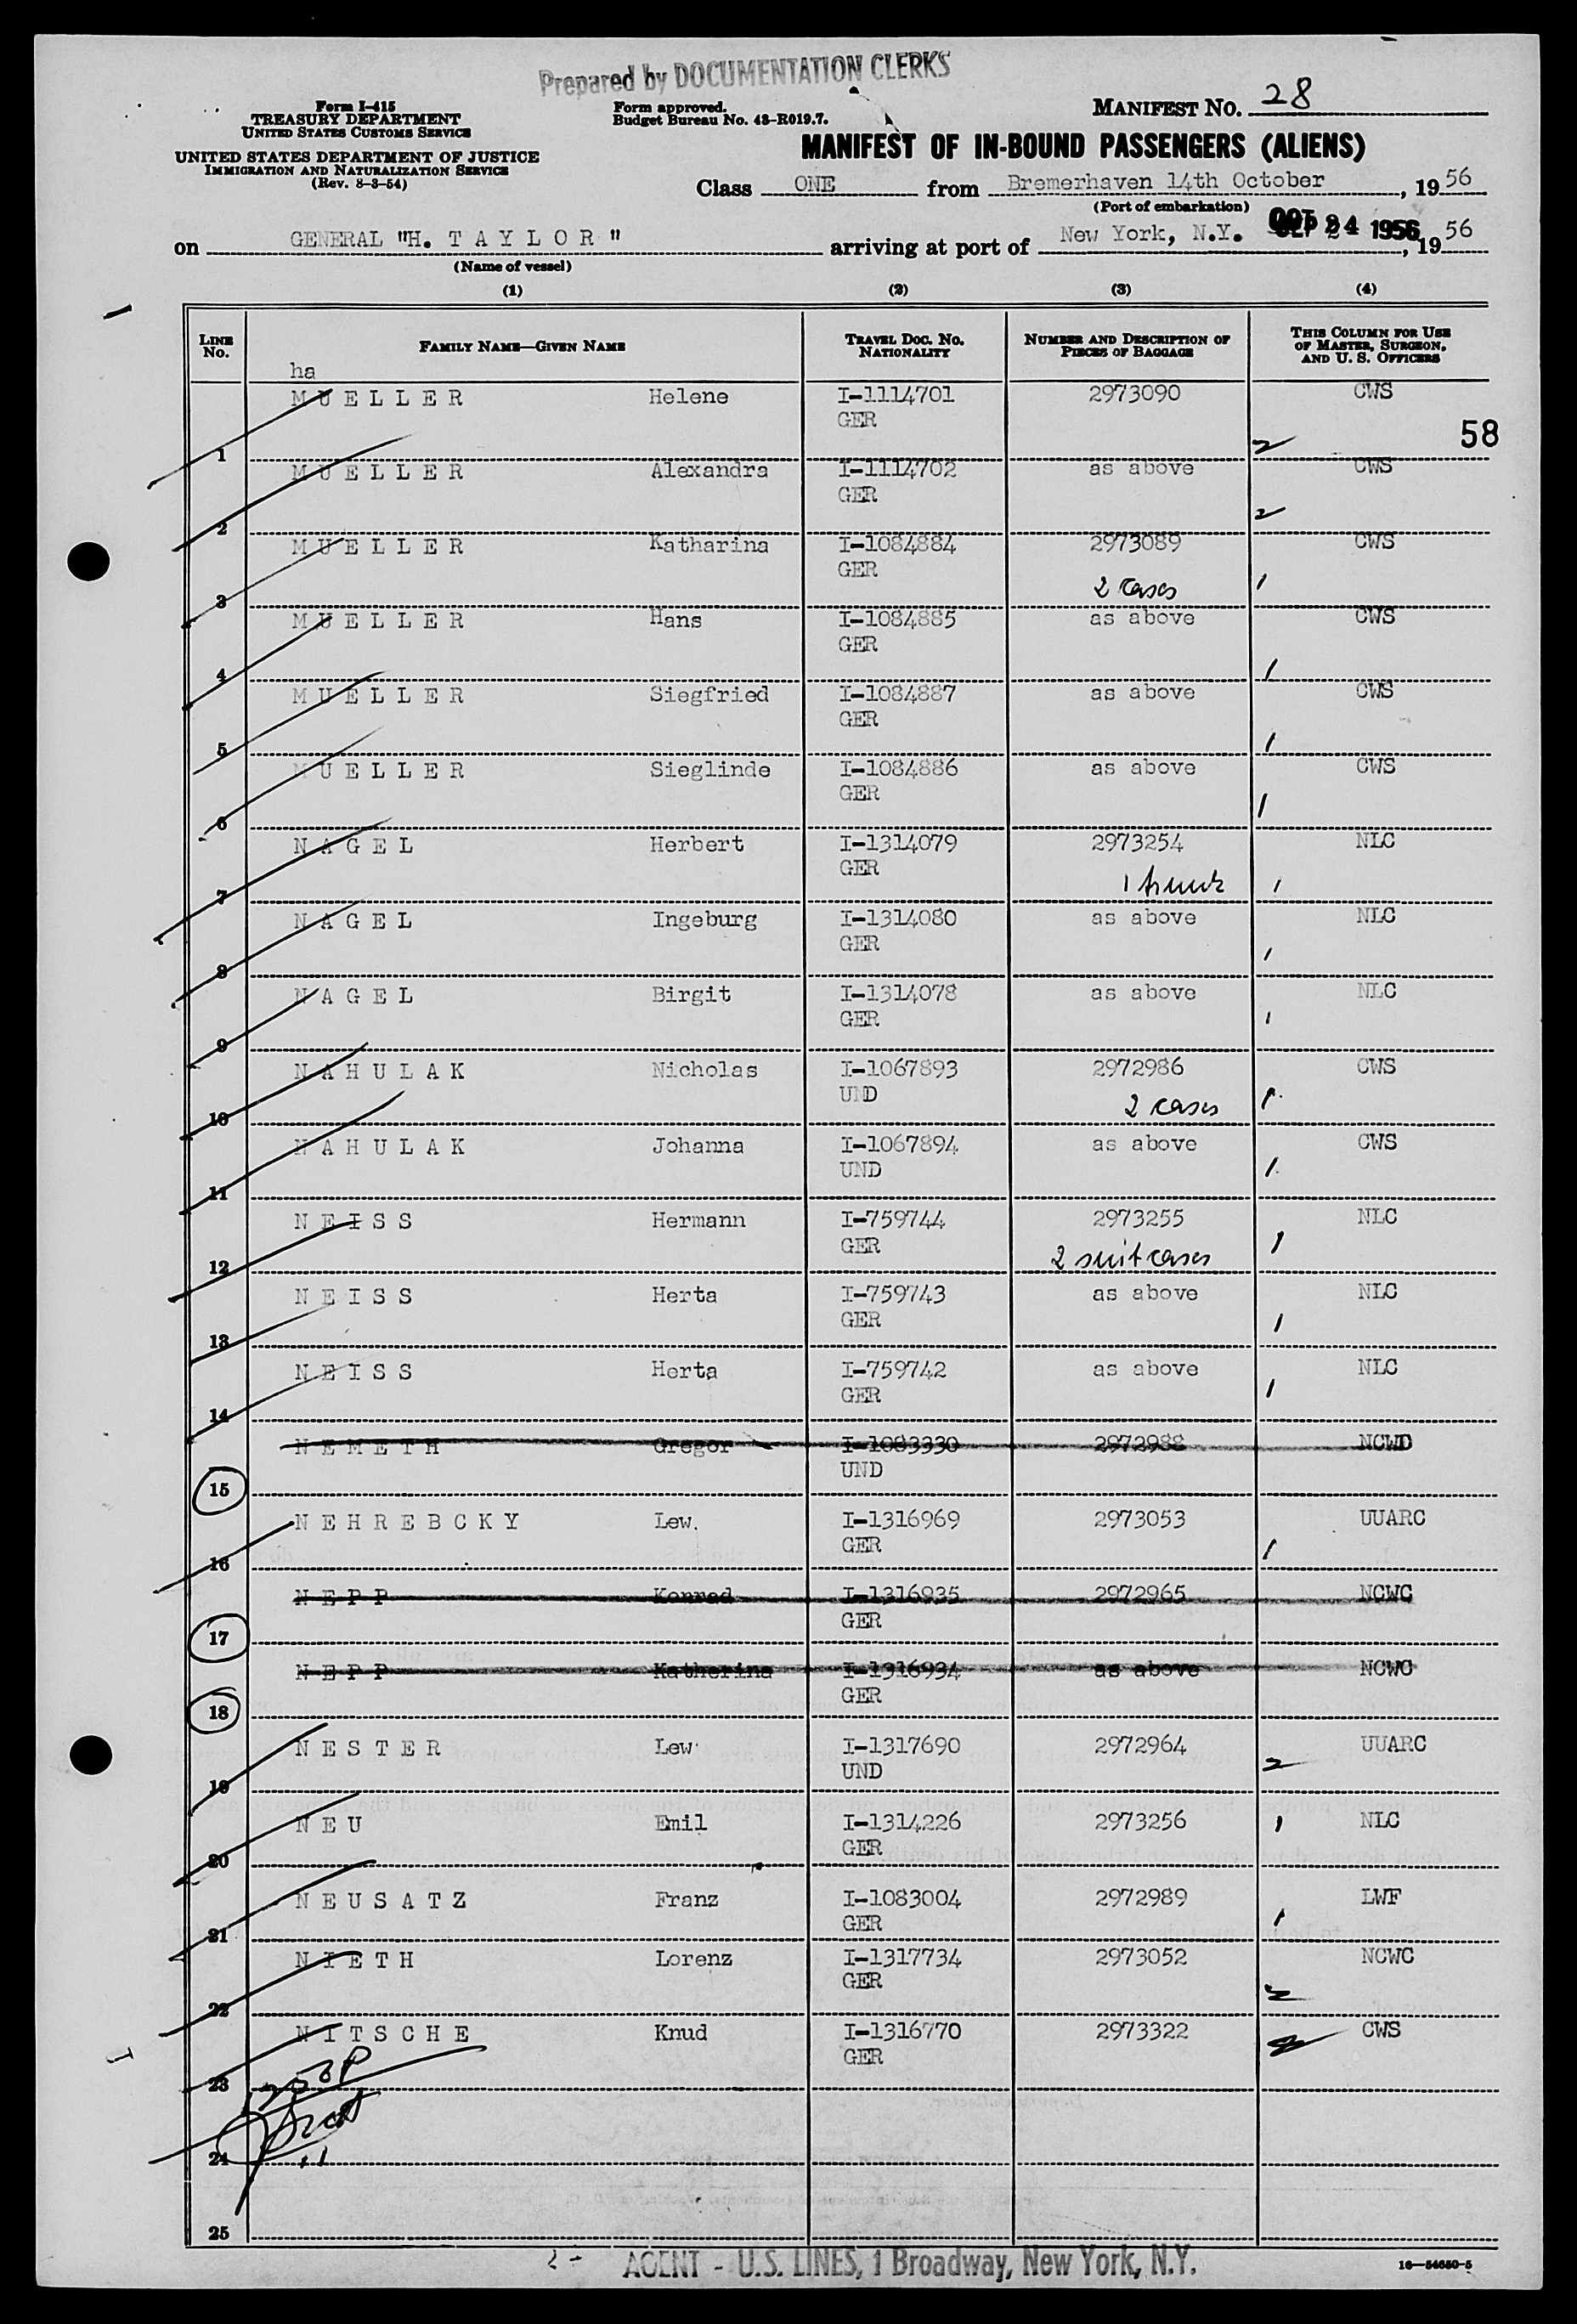 Prepared by DOCUMENTATION CLERKS
Form I-415
TREASURY DEPARTMENT
UNITED STATES CUSTOMS SERVICE
UNITED STATES DEPARTMENT OF JUSTICE
IMMIGRATION AND NATURALIZATION SERVICE
(Rev. 8-3-54)
Form approved.
Budget Bureau No. 43-R019.7.
MANIFEST NO. 28
MANIFEST OF IN-BOUND PASSENGERS (ALIENS)
Class ONE from Bremerhaven 14th October, 19 56
(Port of embarkation)
on GENERAL "H. T A Y L O R" arriving at port of New York, N.Y. OCT 24 1956, 19 56
(Name of vessel)
(1) (2) (3) (4)
LINE NO. FAMILY NAME—GIVEN NAME TRAVEL DOC. NO. NATIONALITY NUMBER AND DESCRIPTION OF PIECES OF BAGGAGE THIS COLUMN FOR USE OF MASTER, SURGEON, AND U. S. OFFICERS
ha
M U E L L E R Helene I-1114701 2973090 CWS
GER
1 2 58
M U E L L E R Alexandra I-1114702 as above CWS
GER
2 2
M U E L L E R Katharina I-1084884 2973089 CWS
GER
3 2 cases 1
M U E L L E R Hans I-1084885 as above CWS
GER
4 1
M U E L L E R Siegfried I-1084887 as above CWS
GER
5 1
M U E L L E R Sieglinde I-1084886 as above CWS
GER
6 1
N A G E L Herbert I-1314079 2973254 NLC
GER
7 1 trunk 1
N A G E L Ingeburg I-1314080 as above NLC
GER
8 1
N A G E L Birgit I-1314078 as above NLC
GER
9 1
N A H U L A K Nicholas I-1067893 2972986 CWS
UND
10 2 cases 1
N A H U L A K Johanna I-1067894 as above CWS
UND
11 1
N E I S S Hermann I-759744 2973255 NLC
GER
12 2 suitcases 1
N E I S S Herta I-759743 as above NLC
GER
13 1
N E I S S Herta I-759742 as above NLC
GER
14 1
N E M E T H Gregor I-1083330 2972988 NCWD
UND
15
N E H R E B C K Y Lew. I-1316969 2973053 UUARC
GER
16 1
N E P P Konrad I-1316935 2972965 NCWC
GER
17
N E P P Katherina I-1316934 as above NCWC
GER
18
N E S T E R Lew I-1317690 2972964 UUARC
UND
19 2
N E U Emil I-1314226 2973256 1 NLC
GER
20
N E U S A T Z Franz I-1083004 2972989 LWF
GER
21 1
N I E T H Lorenz I-1317734 2973052 NCWC
GER
22 2
N I T S C H E Knud I-1316770 2973322 2 CWS
GER
23
24
25
AGENT - U.S. LINES, 1 Broadway, New York, N.Y.
16—54650-5